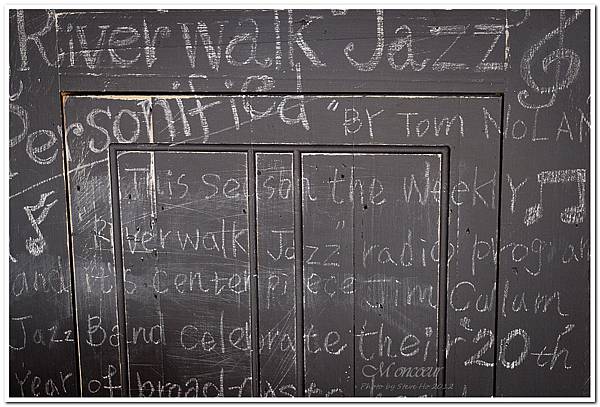 Riverwalk Jazz
Personified" BY Tom NoLAN
"This season the weekly
Riverwalk Jazz" radio program
and it's centerpiece Jim Culum
Jazz Band celebrate their 20th
year of
Moncoeur
Photo by Steve Ho 2012